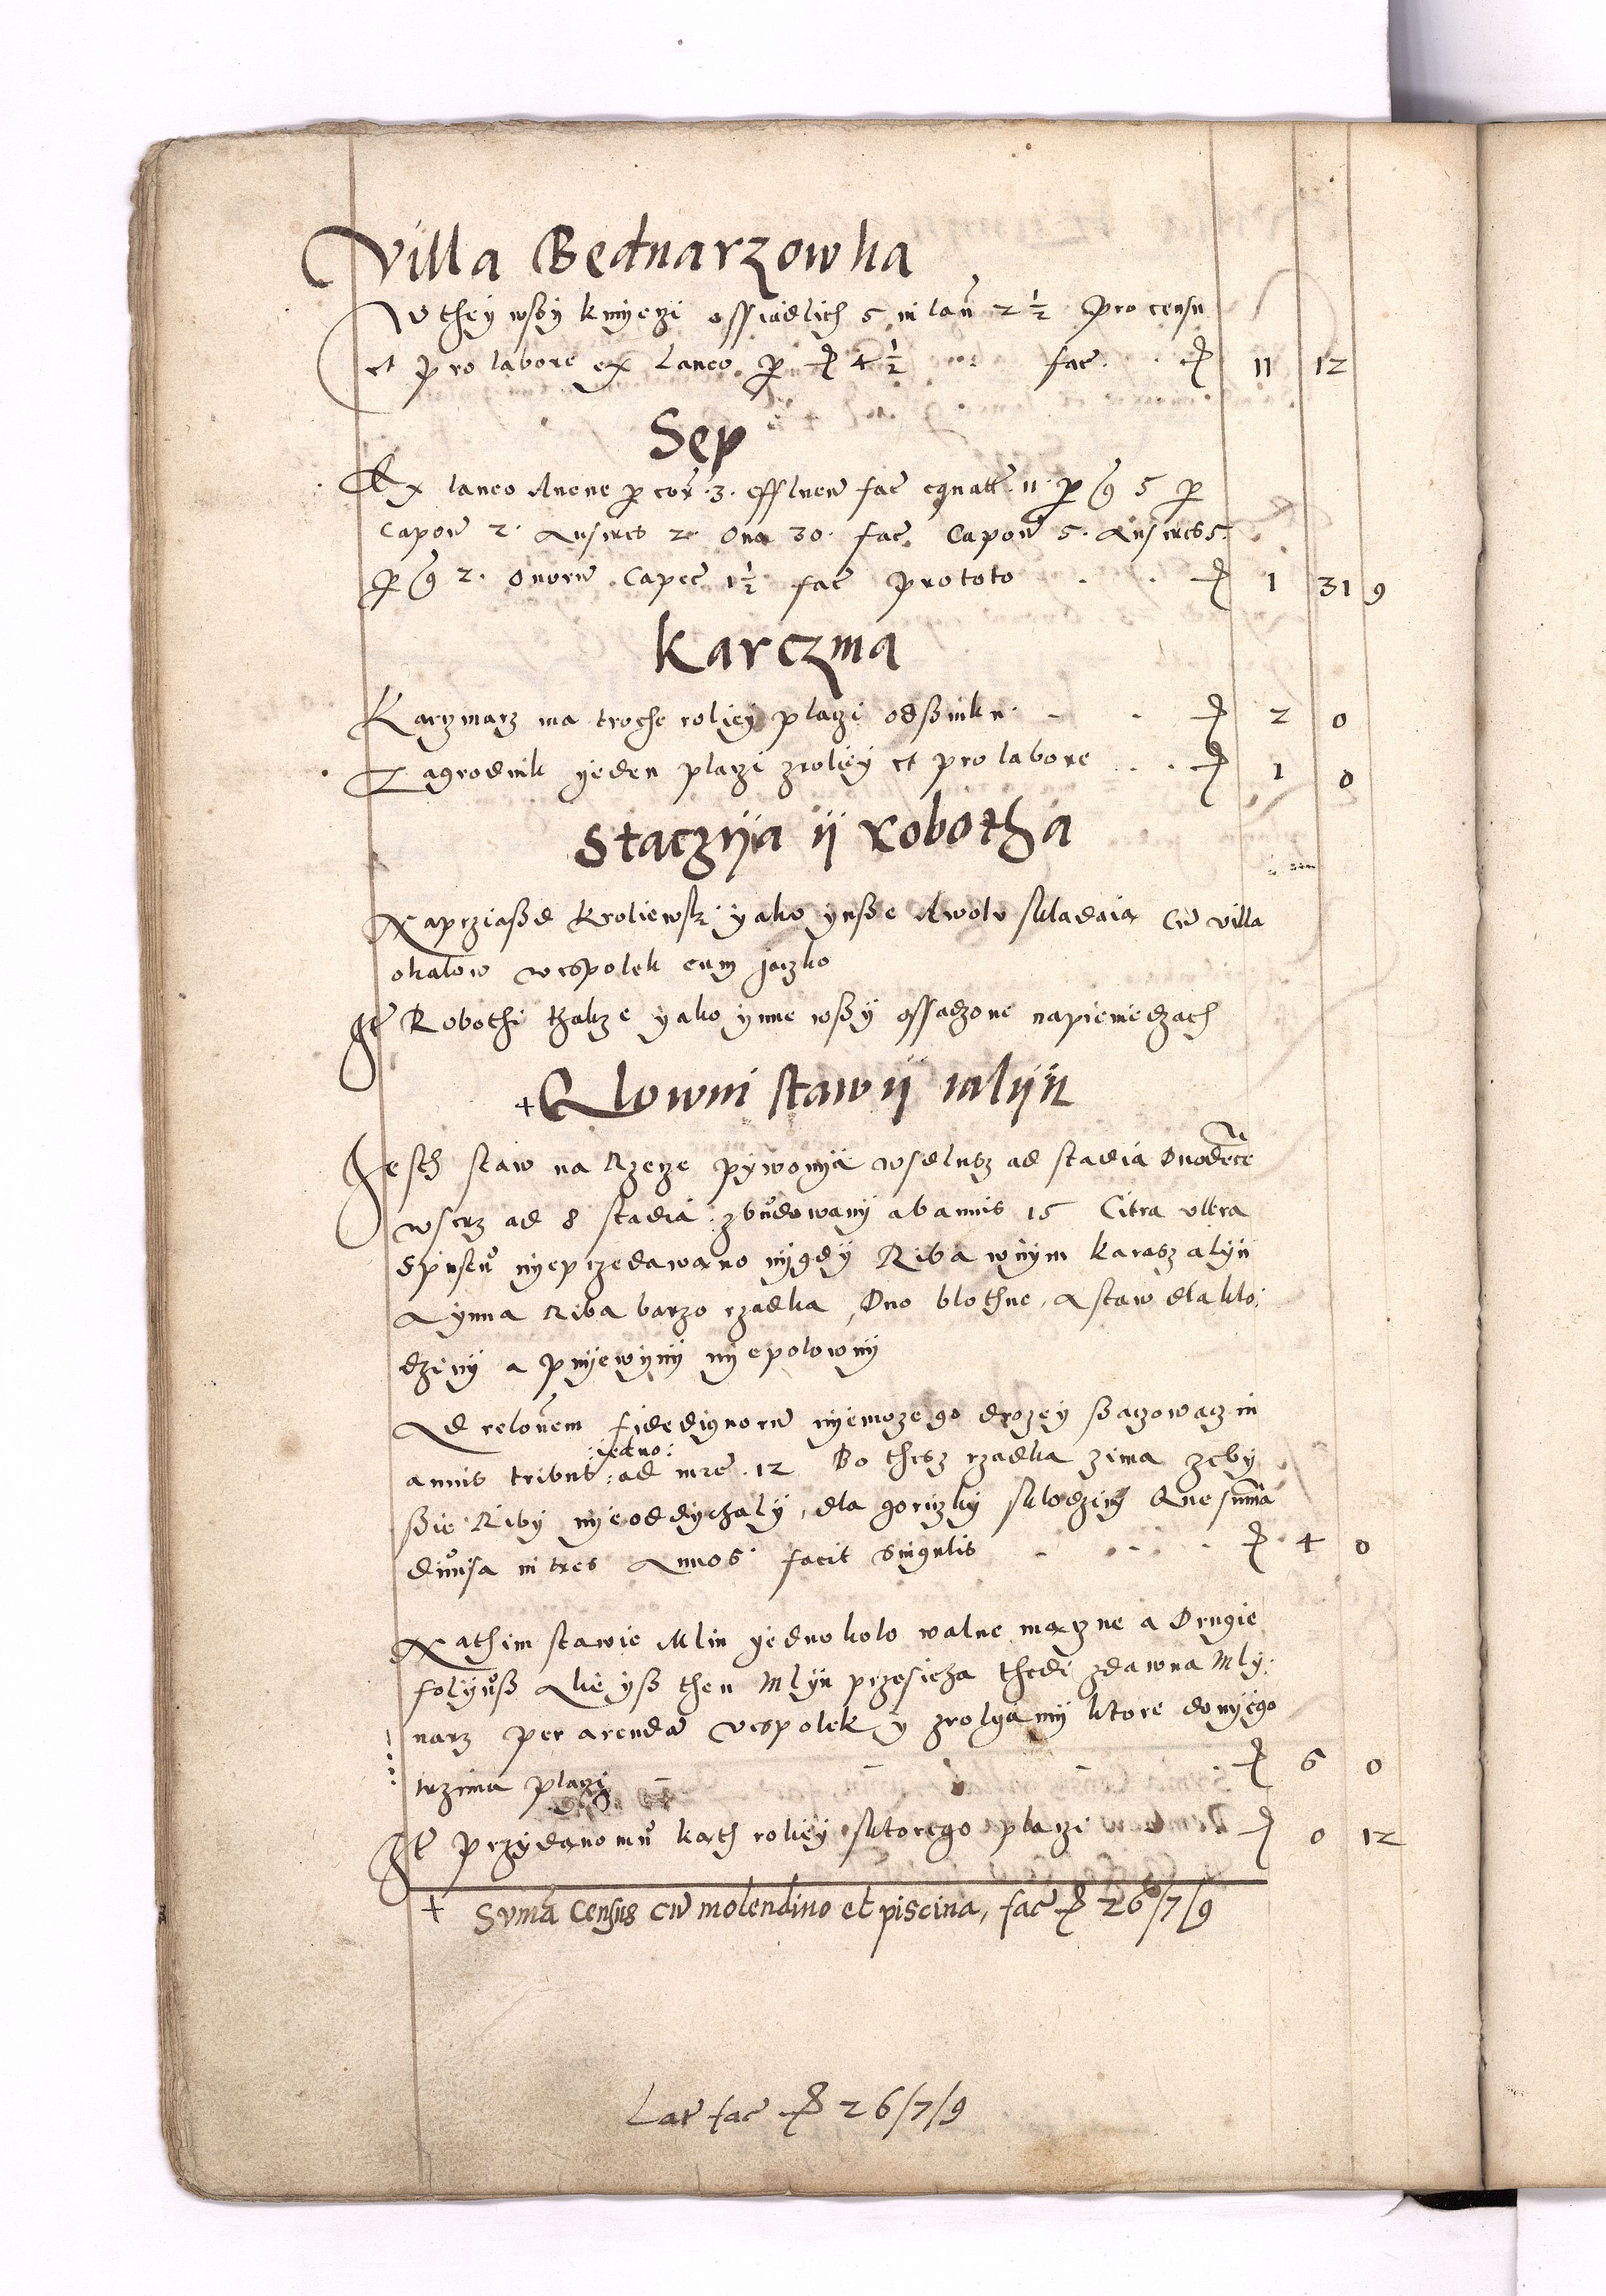 Villa Bednarzowka
W they wsßy kmyeczi ossiadlich 5 in lan̄ 2 1/2 Pro censu
et pro labore ex Laneo p 4 1/2 fac̄ 11 12
Sep
Ex laneo Avene p cor̄ 3. effluen̄ fac̄ 11 p g 5 p
Capon̄ 2. Anseres 2. Ova 30. fac̄ Capon̄ 5. Anseres 5.
p g 2. ovorū Capec̄ 1 1/2 fac̄ pro toto 1 31 9
Karczma
Karczmarz ma troche roliey placzi od ßinku 2 0
Zagrodnik yeden placzi zroliey et pro labore 1 0
Staczyia ij Robotha
Na prziaßd Kroliewsk: yako ynße Awolv skladaia Cū villa
okalow wespolek cum jaczko
It Robothi thakze yako ynne wsßy ossadzone na pieniedzach
+ Qlowni stawij mlijn
Jesth staw na Rzecze pywonya wsdlusz ad stadia Duodec̄e
wserz ad 8 stadia zbudowany ab annis 15 Citra vltra
Spustu nyeprzedawano nygdy Riba wnym karasz a lyn
A ynna Riba barzo rzadka, Dno blothne, A staw dla klo:
dziny a pnyewyny nyepolowny
Ad relonem fidedignorū nyemoze go drozey ßaczowacz in
annis tribus :iedno: ad mrc̄ 12 Bo thesz rzadka zima zeby
ßie Riby nyeoddychaly, dla goriczky skłodziny Que summa
diuisa in tres Annos facit Singulis 4 0
Na thim stawie Mlin yedno kolo walne maczne a Drugie
folyuß Ale yß then Mlyn przesicha thedi zdawna Mly:
narz per arendā vespolek y zrolyamy ktore do nyego
trzima placzi 6 0
It Przydano mu kath roliey sktorego placzi 0 12
+ Suma Census cū molendino et piscina, fac̄ 26/7/9
Lat fac̄ 26/7/9